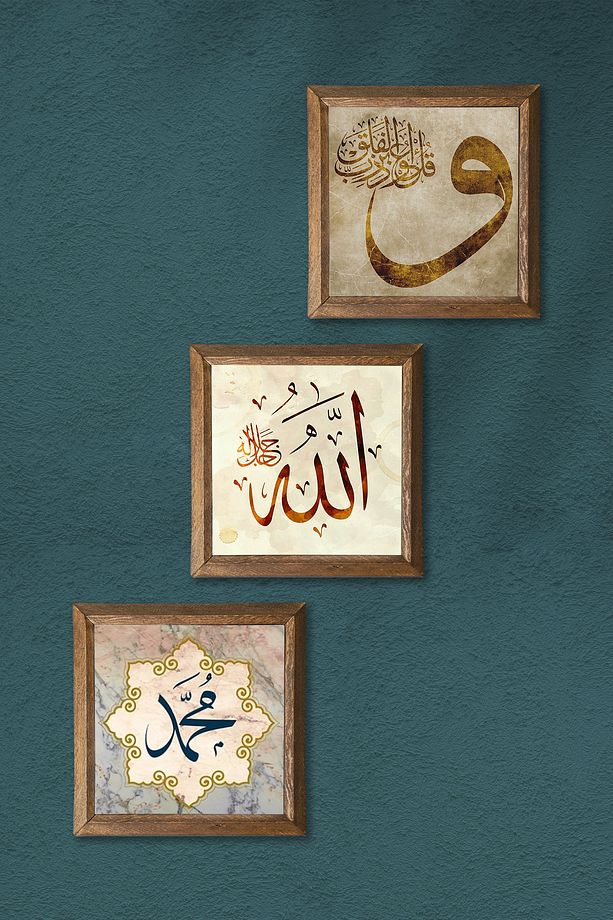 و
قل أعوذ برب الفلق
الله
جل جلاله
محمد